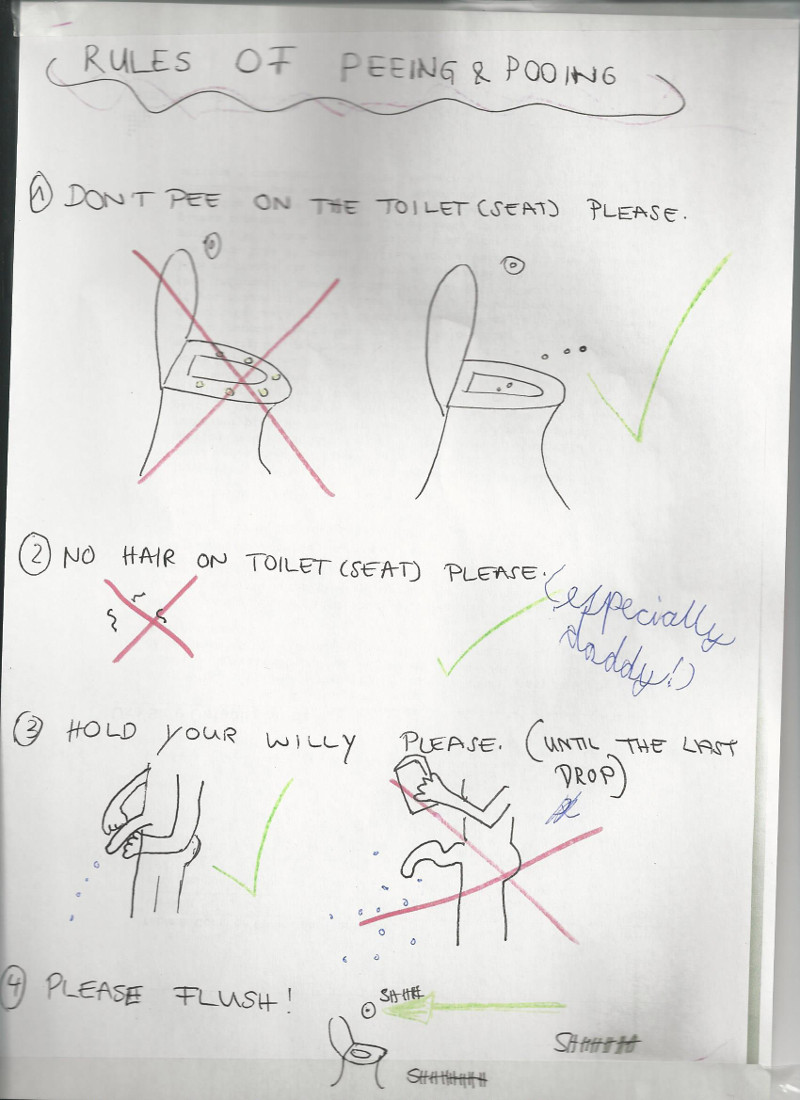 RULES OF PEEING & POOING
1 DON'T PEE ON THE TOILET (SEAT) PLEASE.
2 NO HAIR ON TOILET (SEAT) PLEASE.
(especially
daddy!)
3 HOLD YOUR WILLY PLEASE. (UNTIL THE LAST
DROP)
4 PLEASE FLUSH!
SHHH
SHHHHHH
SHHHHHHH